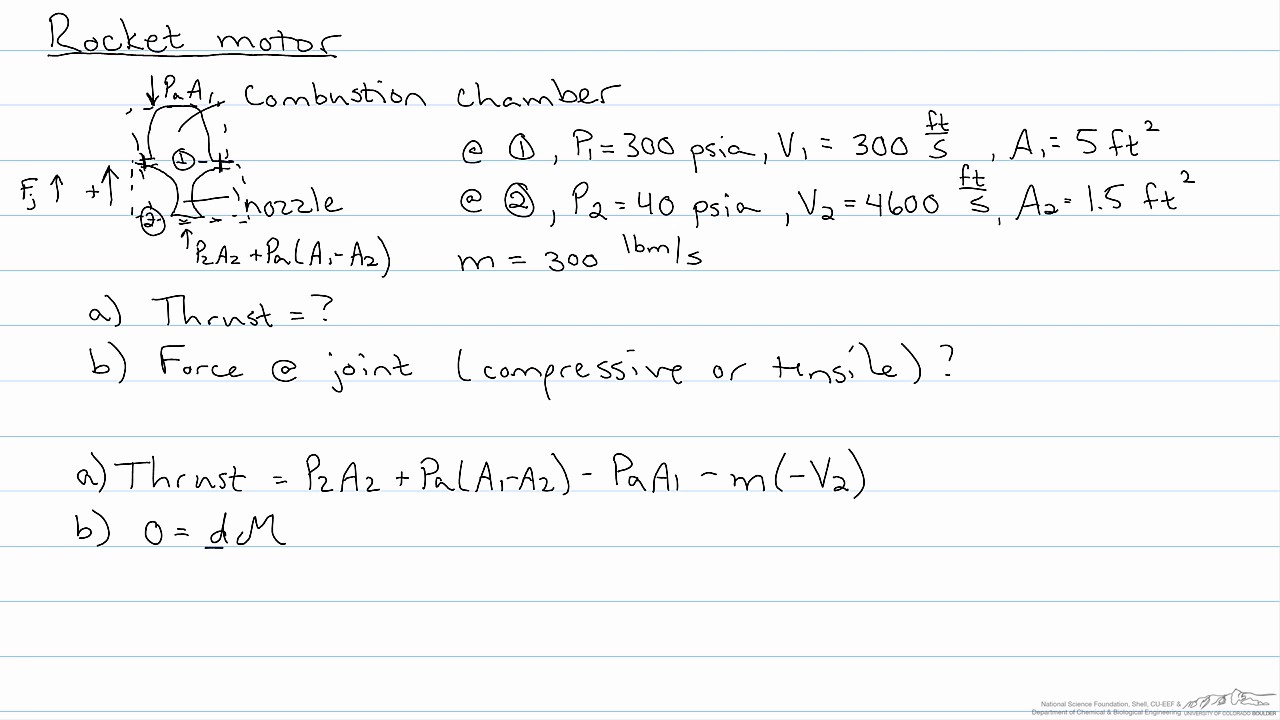 Rocket motor
↓PaA₁
Combustion chamber
@ ①, P₁ = 300 psia, V₁ = 300 ft/s, A₁ = 5 ft²
①
Fj ↑ +↑
nozzle
@ ②, P₂ = 40 psia, V₂ = 4600 ft/s, A₂ = 1.5 ft²
②
↑P₂A₂ + Pa(A₁-A₂)
m = 300 lbm/s
a) Thrust = ?
b) Force @ joint (compressive or tensile)?
a) Thrust = P₂A₂ + Pa(A₁-A₂) - PaA₁ - m(-V₂)
b) 0 = dM
National Science Foundation, Shell, CU-EEF &
Department of Chemical & Biological Engineering UNIVERSITY OF COLORADO BOULDER